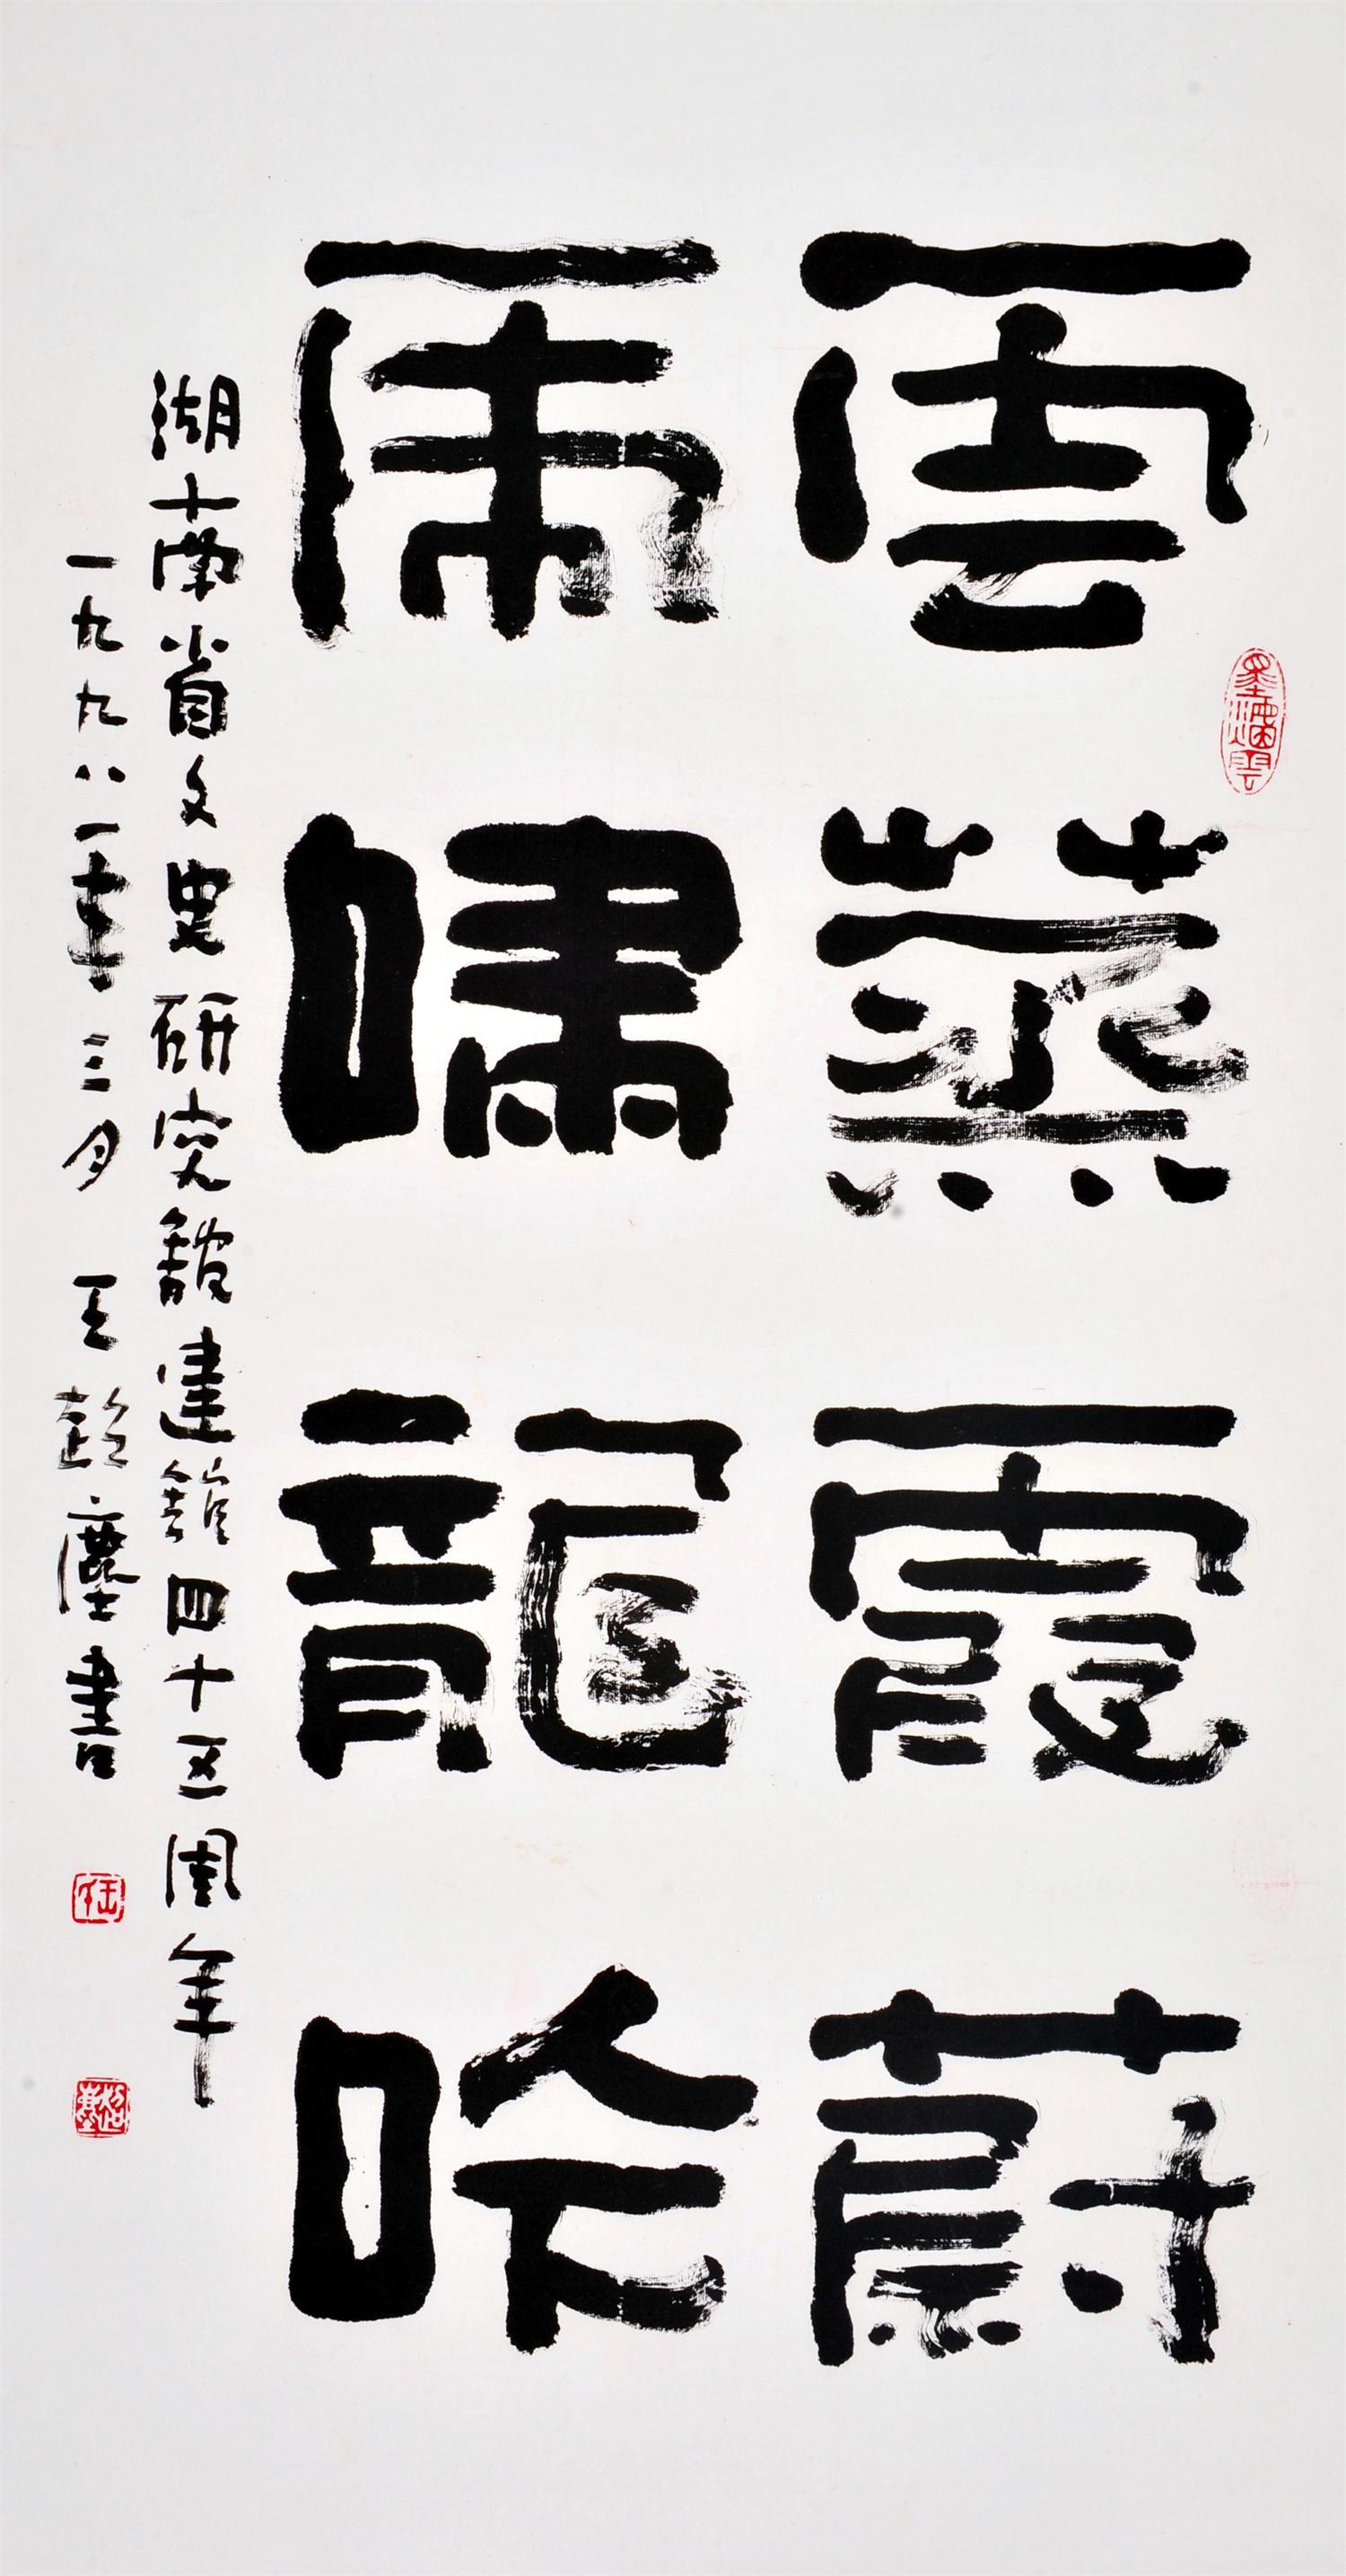 雲蒸霞蔚
虎嘯龍吟
湖南省文史研究館建館四十五周年
一九九八年三月 王超塵書
墨海烟雲
超塵